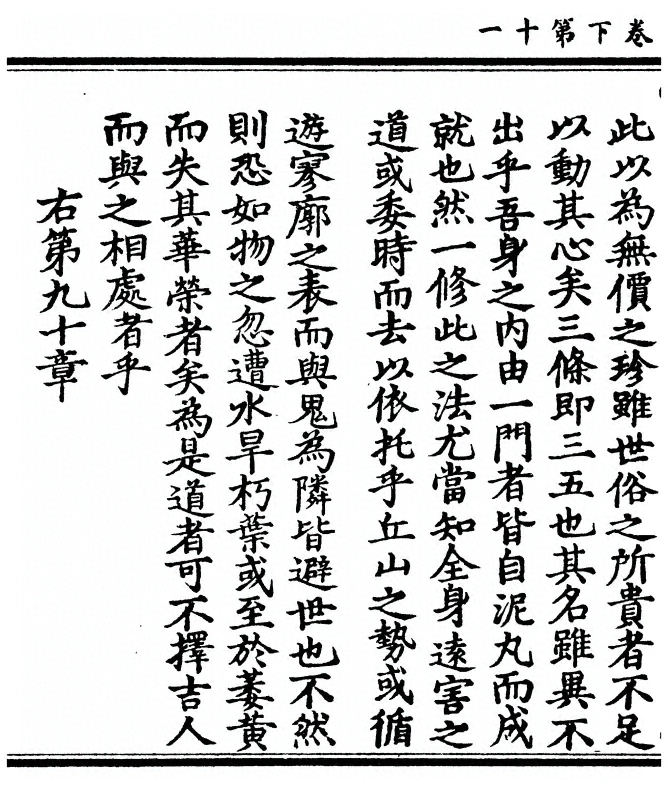 卷下第十一
此以為無價之珍雖世俗之所貴者不足
以動其心矣三條即三五也其名雖異不
出乎吾身之内由一門者皆自泥丸而成
就也然一修此之法尤當知全身遠害之
道或委時而去以依托乎丘山之勢或循
遊寥廓之表而與鬼為隣皆避世也不然
則恐如物之忽遭水旱朽葉或至於萎黄
而失其華榮者矣為是道者可不擇吉人
而與之相處者乎
右第九十章